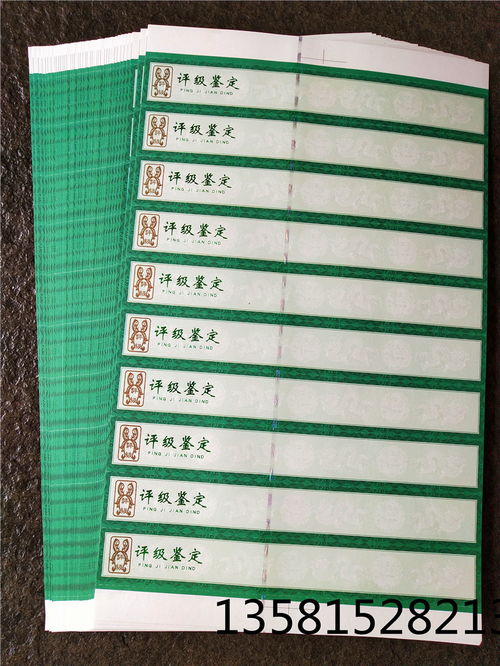 评级鉴定
PING JI JIAN DIND
评级鉴定
PING JI JIAN DIND
评级鉴定
PING JI JIAN DIND
评级鉴定
PING JI JIAN DIND
评级鉴定
PING JI JIAN DIND
评级鉴定
PING JI JIAN DIND
评级鉴定
PING JI JIAN DIND
评级鉴定
PING JI JIAN DIND
评级鉴定
PING JI JIAN DIND
评级鉴定
PING JI JIAN DIND
13581528213